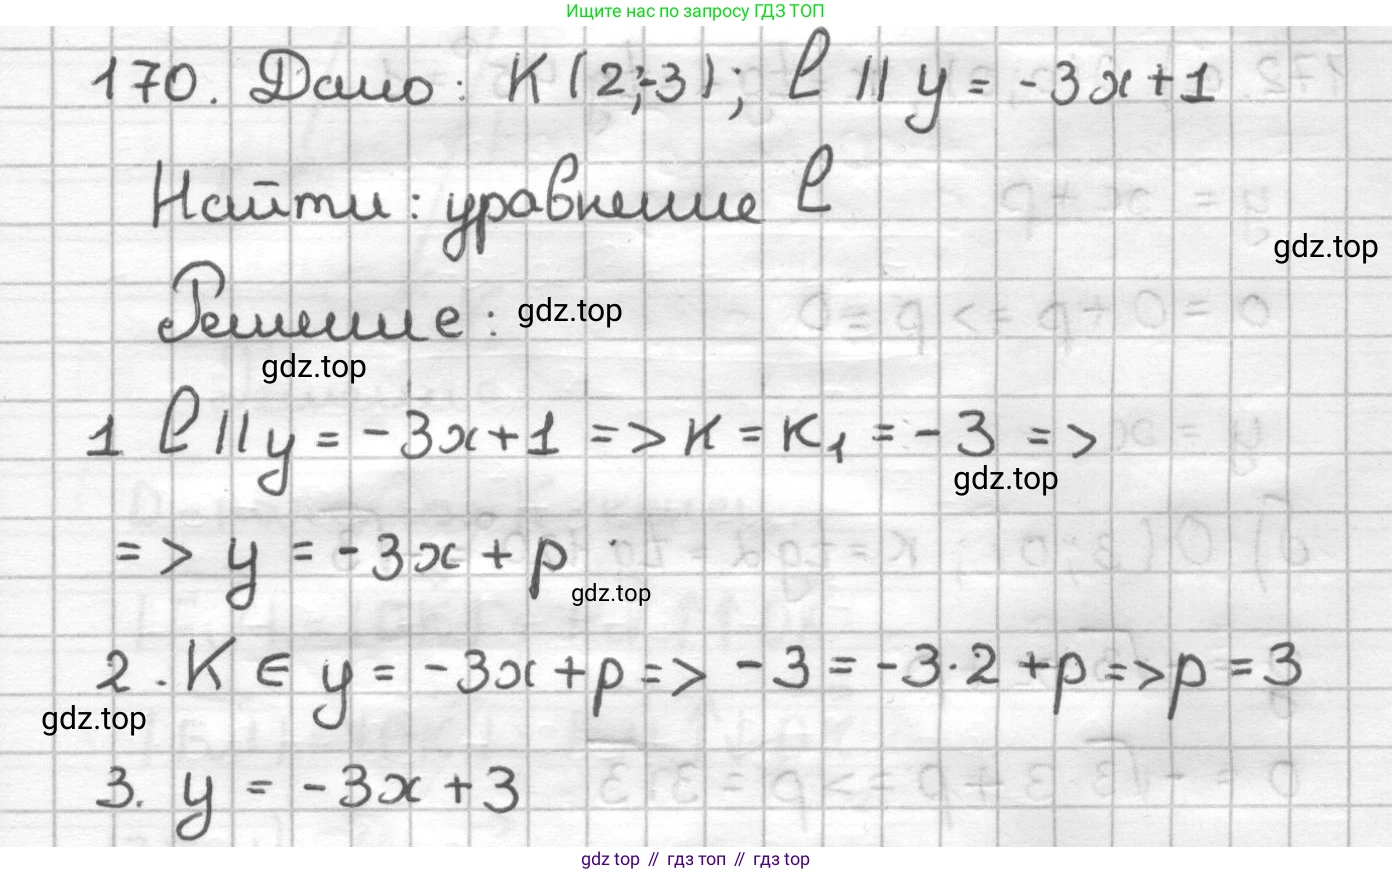 Ищите нас по запросу ГДЗ ТОП
170. Дано: K(2;-3); l || y = -3x+1
Найти: уравнение l
gdz.top
Решение: gdz.top
gdz.top
1 l || y = -3x+1 => к = к₁ = -3 =>
gdz.top
=> y = -3x + p
gdz.top
2. K ∈ y = -3x + p => -3 = -3·2 + p => p = 3
gdz.top
3. y = -3x + 3
gdz top // гдз топ // гдз top